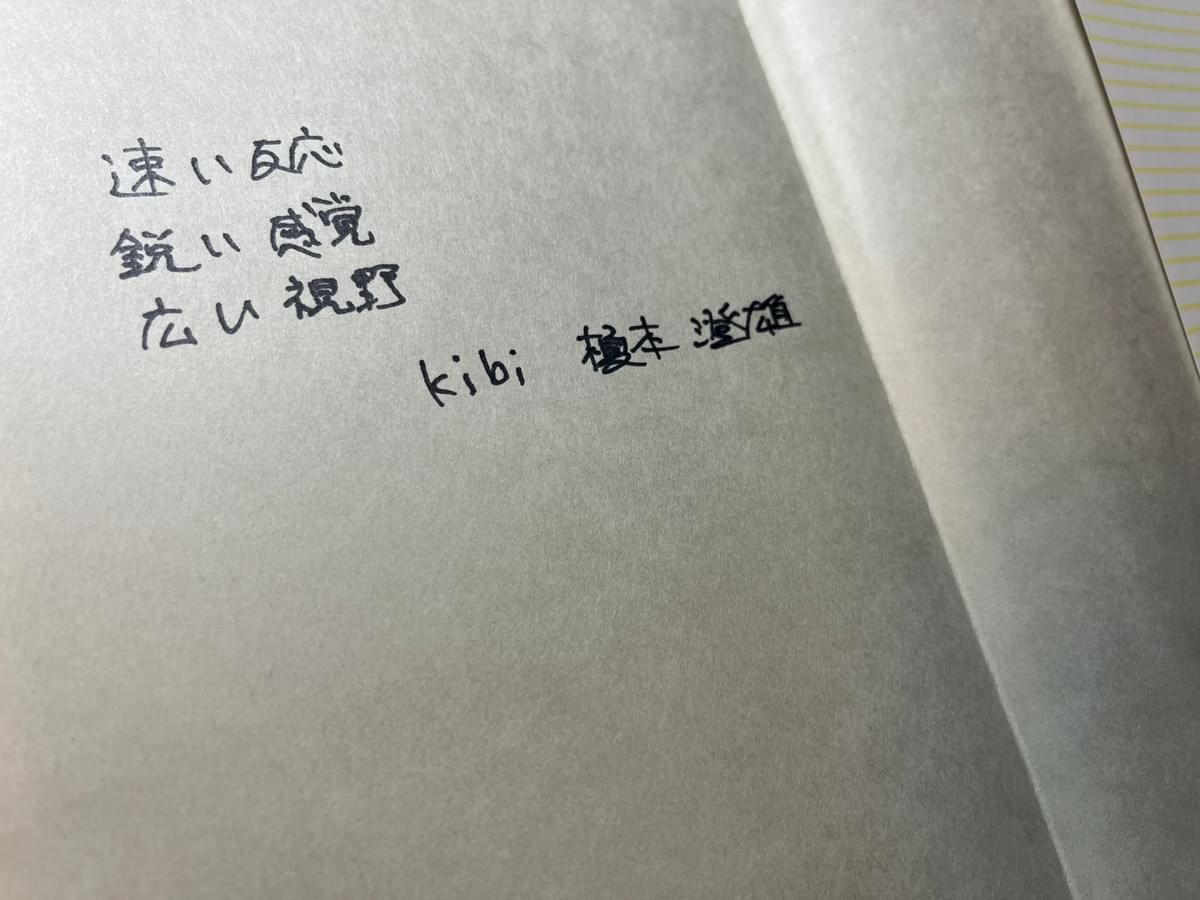 速い反応
鋭い感覚
広い視野
kibi 榎本澄雄